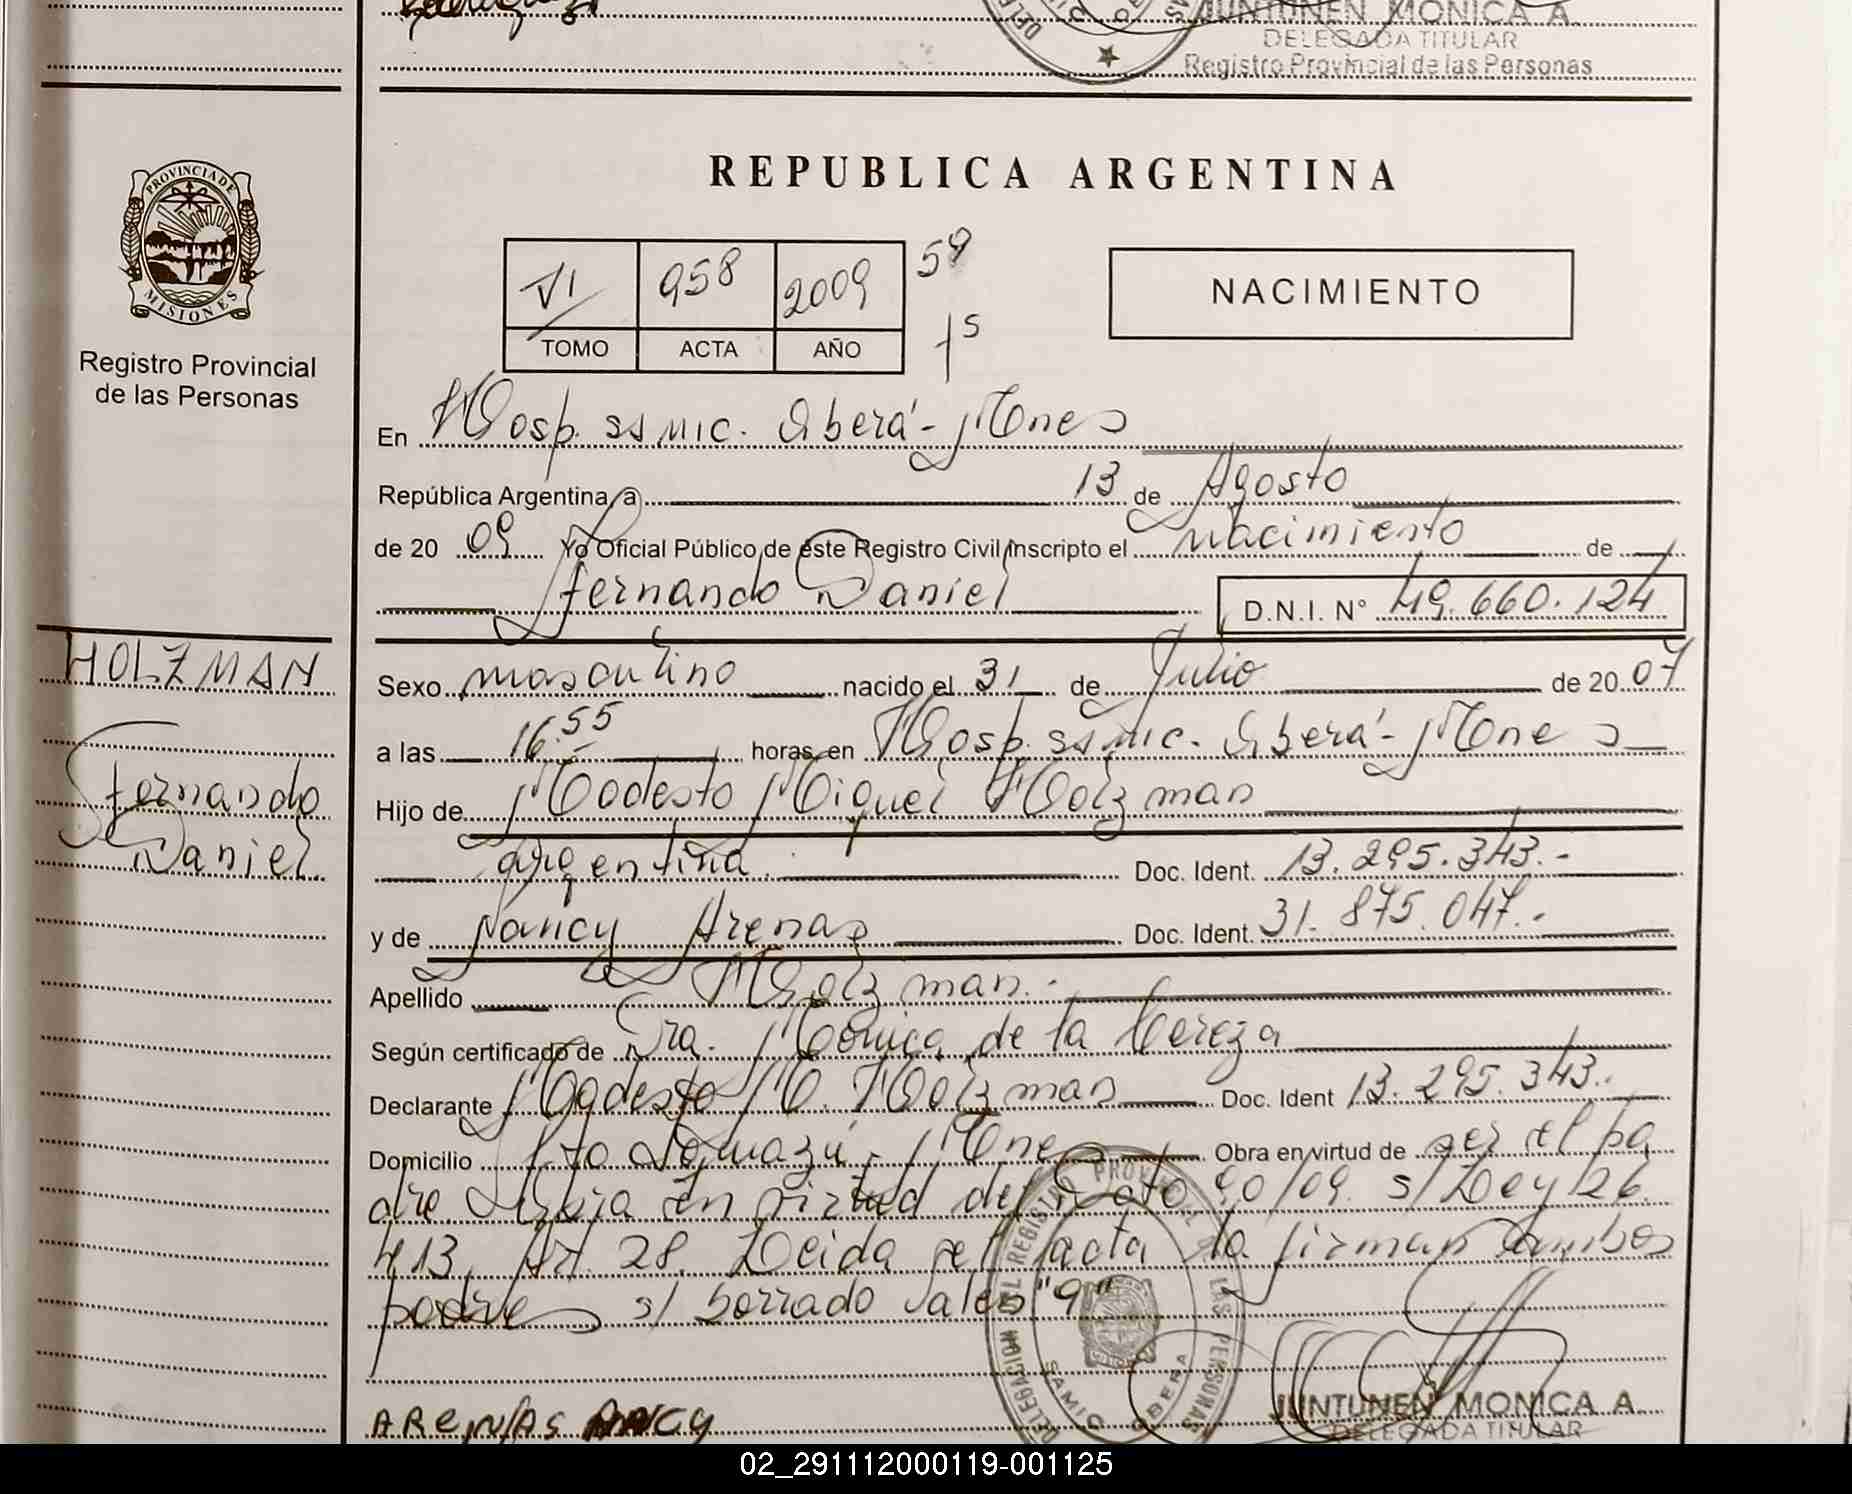 JUNTUNEN MONICA A.
DELEGADA TITULAR
Registro Provincial de las Personas
PROVINCIA DE
MISIONES
Registro Provincial
de las Personas
REPUBLICA ARGENTINA
VI 958 2009 59
TOMO ACTA AÑO
NACIMIENTO
En Hosp. SSMIC. Oberá - Mnes
República Argentina, a 13 de Agosto
de 20 09 Yo Oficial Público de este Registro Civil inscripto el nacimiento de
Fernando Daniel D.N.I. N° 49.660.124
HOLZMAN
Fernando
Daniel
Sexo masculino nacido el 31 de Julio de 20 07
a las 16.55 horas, en Hosp. SSMIC. Oberá - Mnes
Hijo de Modesto Miguel Holzman
argentina. Doc. Ident. 13.295.343.-
y de Nancy Arenas Doc. Ident. 31.875.047.-
Apellido Holzman.-
Según certificado de Dra. Monica de la Cereza
Declarante Modesto M. Holzman Doc. Ident 13.295.343.-
Domicilio Mnes Obra en virtud de ser el pa
dre en virtud del Dcto 90/09. s/Ley 26
413, Art. 28. Leida el acta la firman ambos
padres s/ borrado vale "9"
DELEGACION DEL REGISTRO PROVINCIAL DE LAS PERSONAS
SAMIC OBERA
JUNTUNEN MONICA A.
DELEGADA TITULAR
ARENAS NANCY
02_291112000119-001125